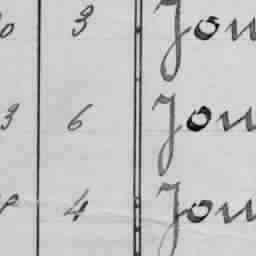 0 3 Jou
3 6 Jou
4 Jou